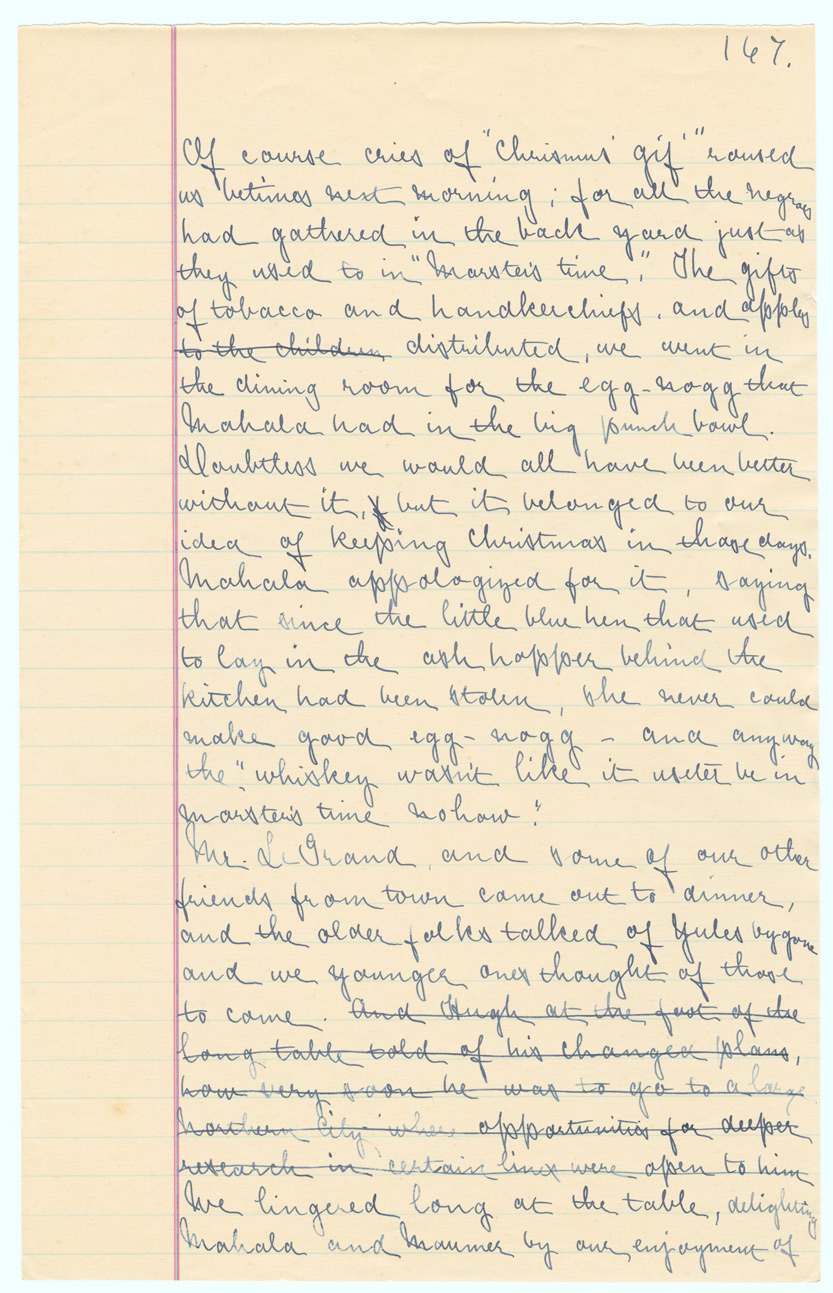 167.
Of course cries of "Chrismus' gif'" roused
us betimes next morning; for all the negroes
had gathered in the back yard just as
they used to in "Marster's time". The gifts
of tobacco and handkerchiefs, and apples
to the children distributed, we went in
the dining room for the egg-nogg that
Mahala had in the big punch bowl.
Doubtless we would all have been better
without it, but it belonged to our
idea of keeping Christmas in those days.
Mahala appologized for it, saying
that since the little blue hen that used
to lay in the ash hopper behind the
kitchen had been stolen, she never could
make good egg-nogg - and anyway
the "whiskey wasn't like it useter be in
marster's time nohow".
Mr. Le Grand, and some of our other
friends from town came out to dinner,
and the older folks talked of Yules bygone
and we younger ones thought of those
to come. And Hugh at the foot of the
long table told of his changed plans,
how very soon he was to go to a large
Northern City where opportunities for deeper
research in certain lines were open to him
We lingered long at the table, delighting
Mahala and Maumer by our enjoyment of